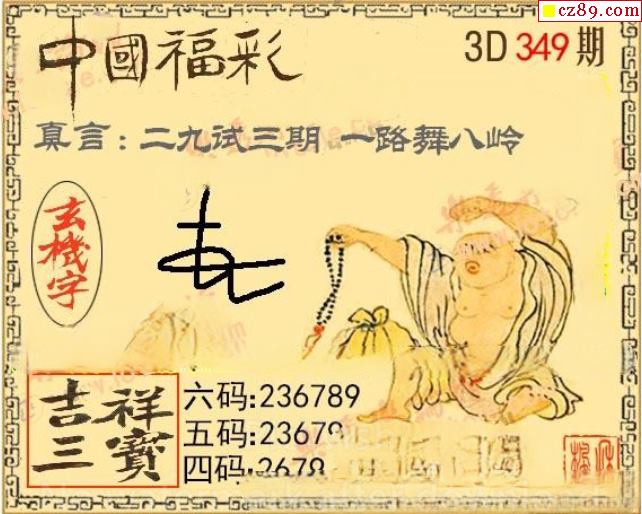 cz89.com
中國福彩
3D 349 期
真言：二九试三期 一路舞八岭
玄機字
吉祥
三寶
六码:236789
五码:23679
四码:2679